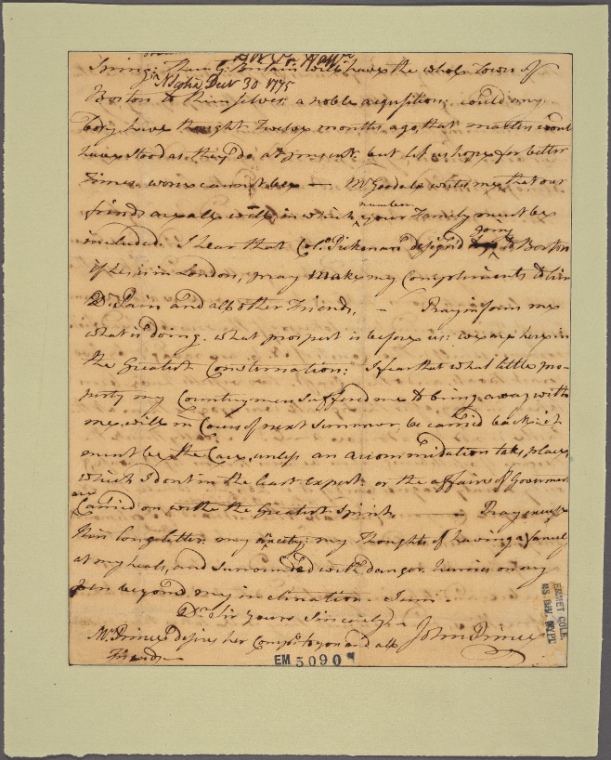 Spring, then G. Britain will have the whole Town of
Dec 30 1775
Boston to themselves, a noble acquisition, could any
body have thought Twelve months ago, that matters would
have stood as they do at present: but let us hope for better
Times. worse cannot be — Mr Goodale writes me that our
friends are all well, in which number your Family must be
included. I hear that Col. Pickman designd going to Boston
if he is in London, pray make my Compliments to him
Dr. Pain and all other Friends, — Pray inform me
what is doing. what prospect is before us: we are here in
the Greatest Consternation: I fear that what little pro-
perty my Countrymen sufferd me to bring away with
me, will in Course of next Summer be carried back: it
must be the Case, unless an accommodation take place,
which I dont in the least expect: or the affairs of Governmen
are Carried on with the Greatest Spirit, — Pray excuse
this long letter. my anxiety, my Thoughts of having a family
at my heals, and surrounded with danger hurries on my
pen beyond my inclination. I am
Dr. Sir Yours Sincerely
John Prince
Mrs Prince desires her Compts to you and all
Friends —
EM 5090
EMMET COLL.
MS DIV. NYPL